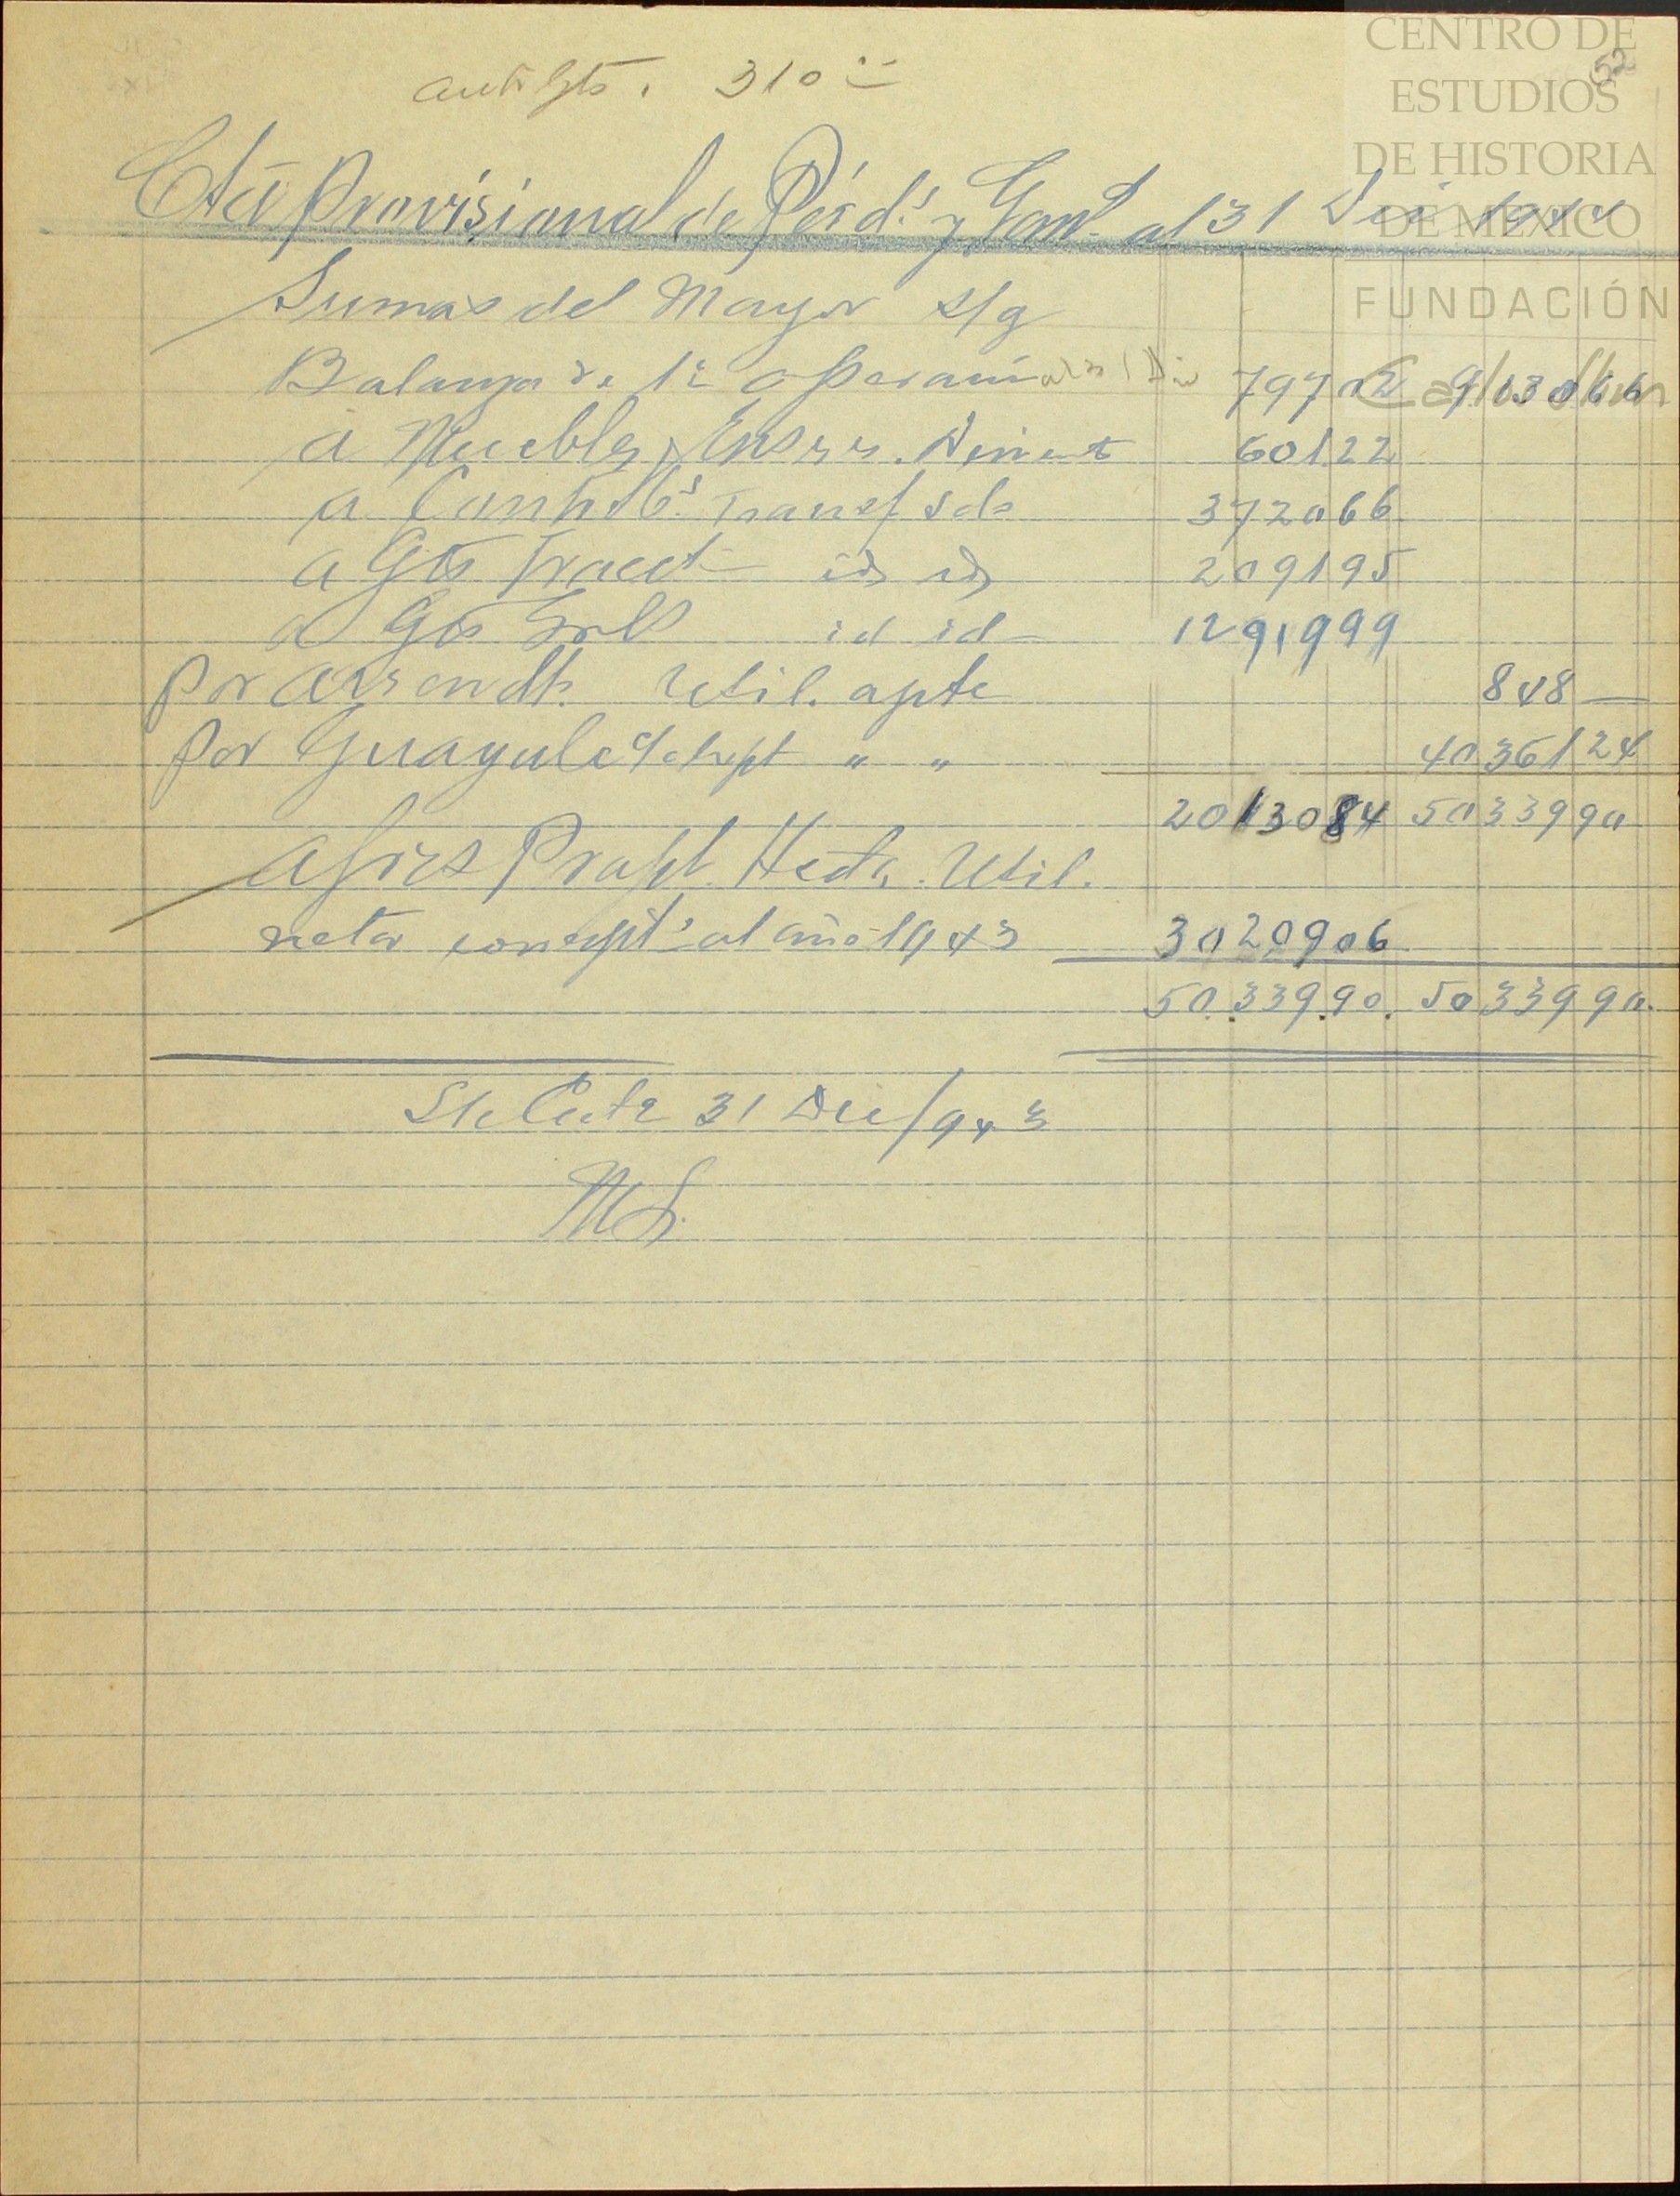 CENTRO DE
ESTUDIOS
DE HISTORIA
DE MEXICO
FUNDACIÓN
Carlos Slim
52
310
Cta Provisional de Pérds y Gans al 31 Dic
Sumas del Mayor s/g
Balanza de 1a 79702 913066
a Muebles y Ens 60122
a Contrib.s Transf sdo 372066
a Gts Tract id id 209195
a Gts Grls id id 1291999
por Arrendto. Util. apte 848 —
por Guayule " " 4036124
2013084 5033990
Util.
neta al año 1943 3020906
5033990 5033990
31 Dic/943